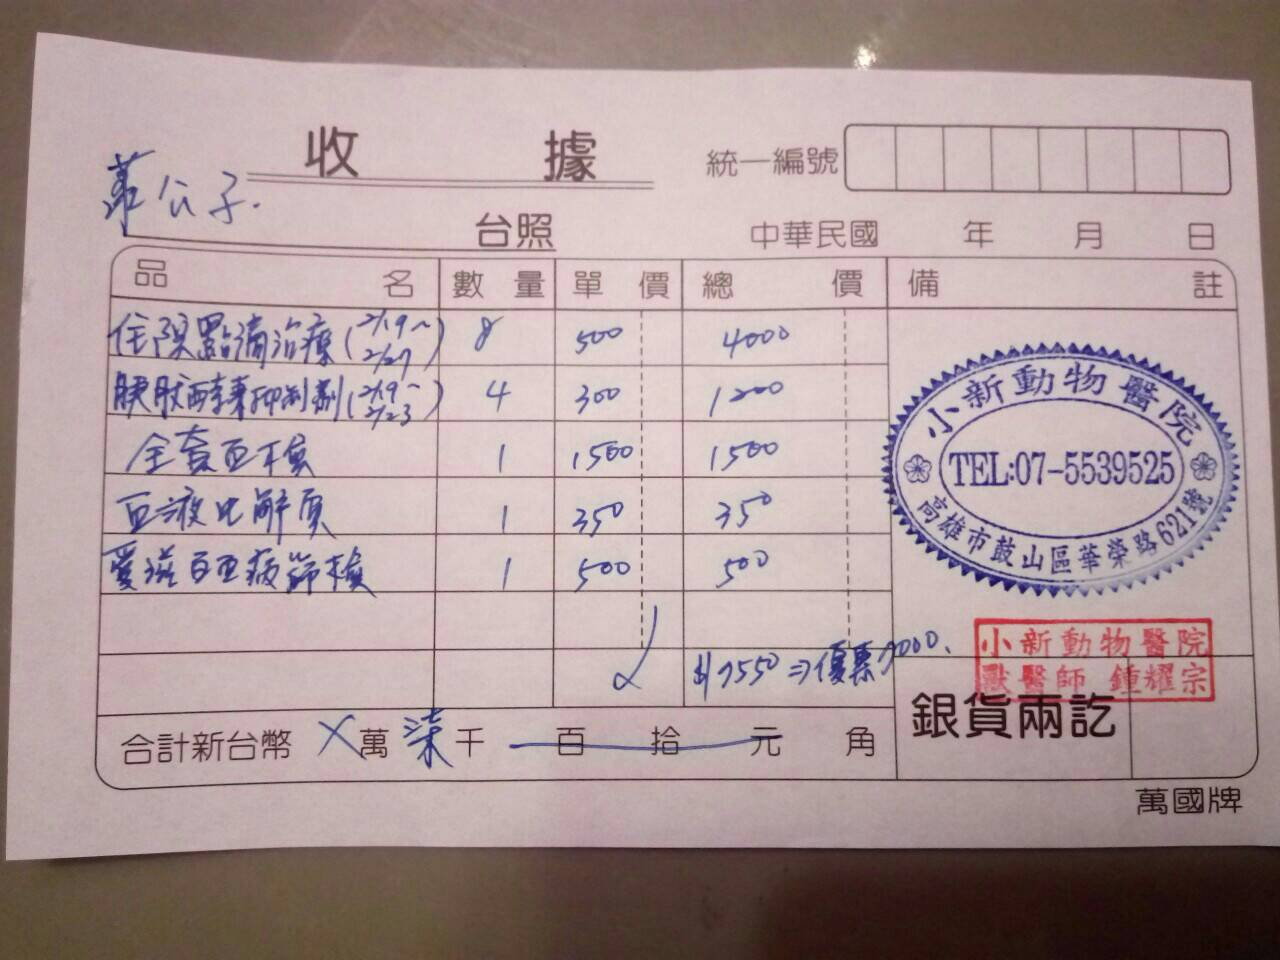 收據
統一編號
公子.
台照
中華民國 年 月 日
品名 數量 單價 總價 備註
住院點滴治療(2/19~2/27) 8 500 4000
胰脢酵素抑制劑(2/19~2/23) 4 300 1200
全套血檢 1 1500 1500
血液電解質 1 350 350
愛滋白血病篩檢 1 500 500
$7550⇒優惠7000.
合計新台幣 X 萬 柒 千 百 拾 元 角
銀貨兩訖
萬國牌
小新動物醫院
TEL:07-5539525
高雄市鼓山區華榮路621號
小新動物醫院
獸醫師 鍾耀宗